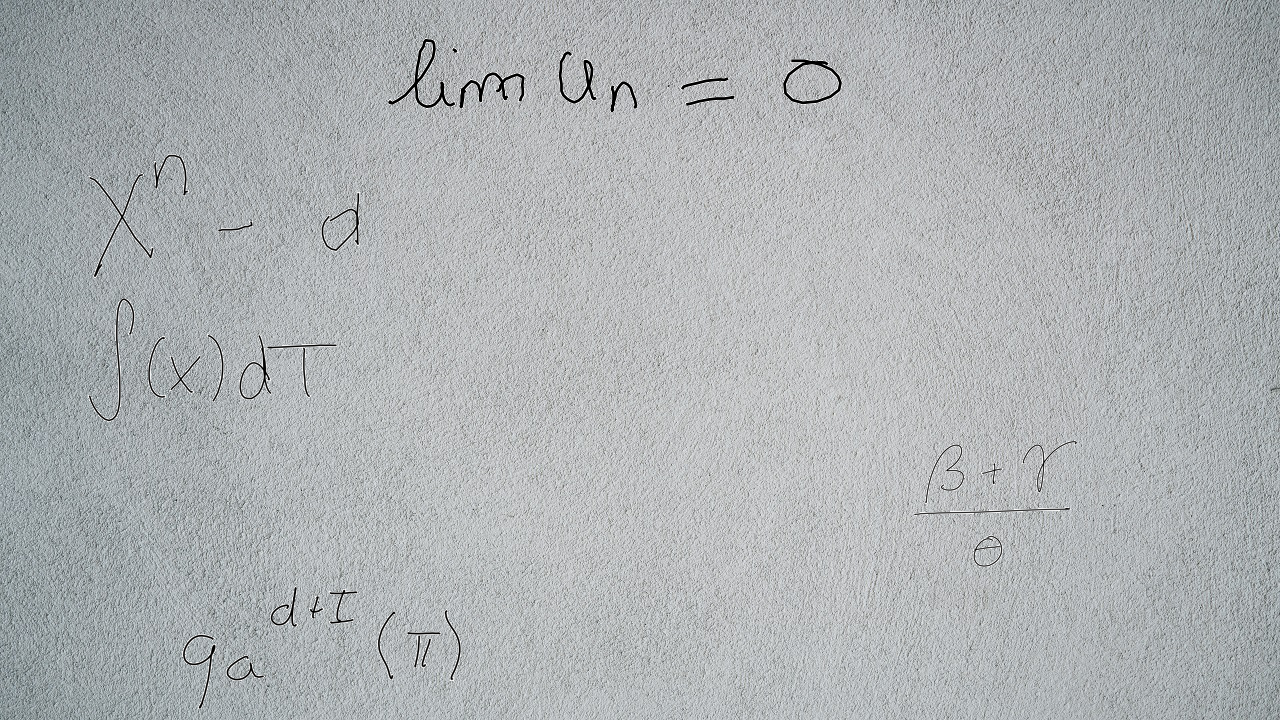 lim Un = 0
X^n - d
∫(x)dT
β + γ / θ
q_a^{d+I} (π)